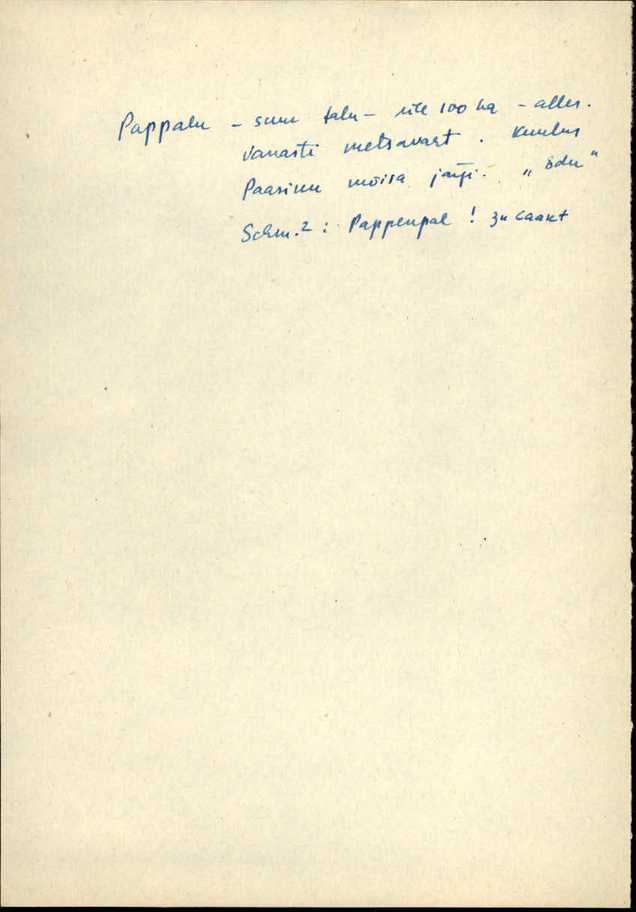 Pappalu – suur talu – üle 100 ha – alles.
Vanasti metsavaht. Kuulus
Paasiku mõisa järgi. „ödu“
Schm.2: Pappenpal!